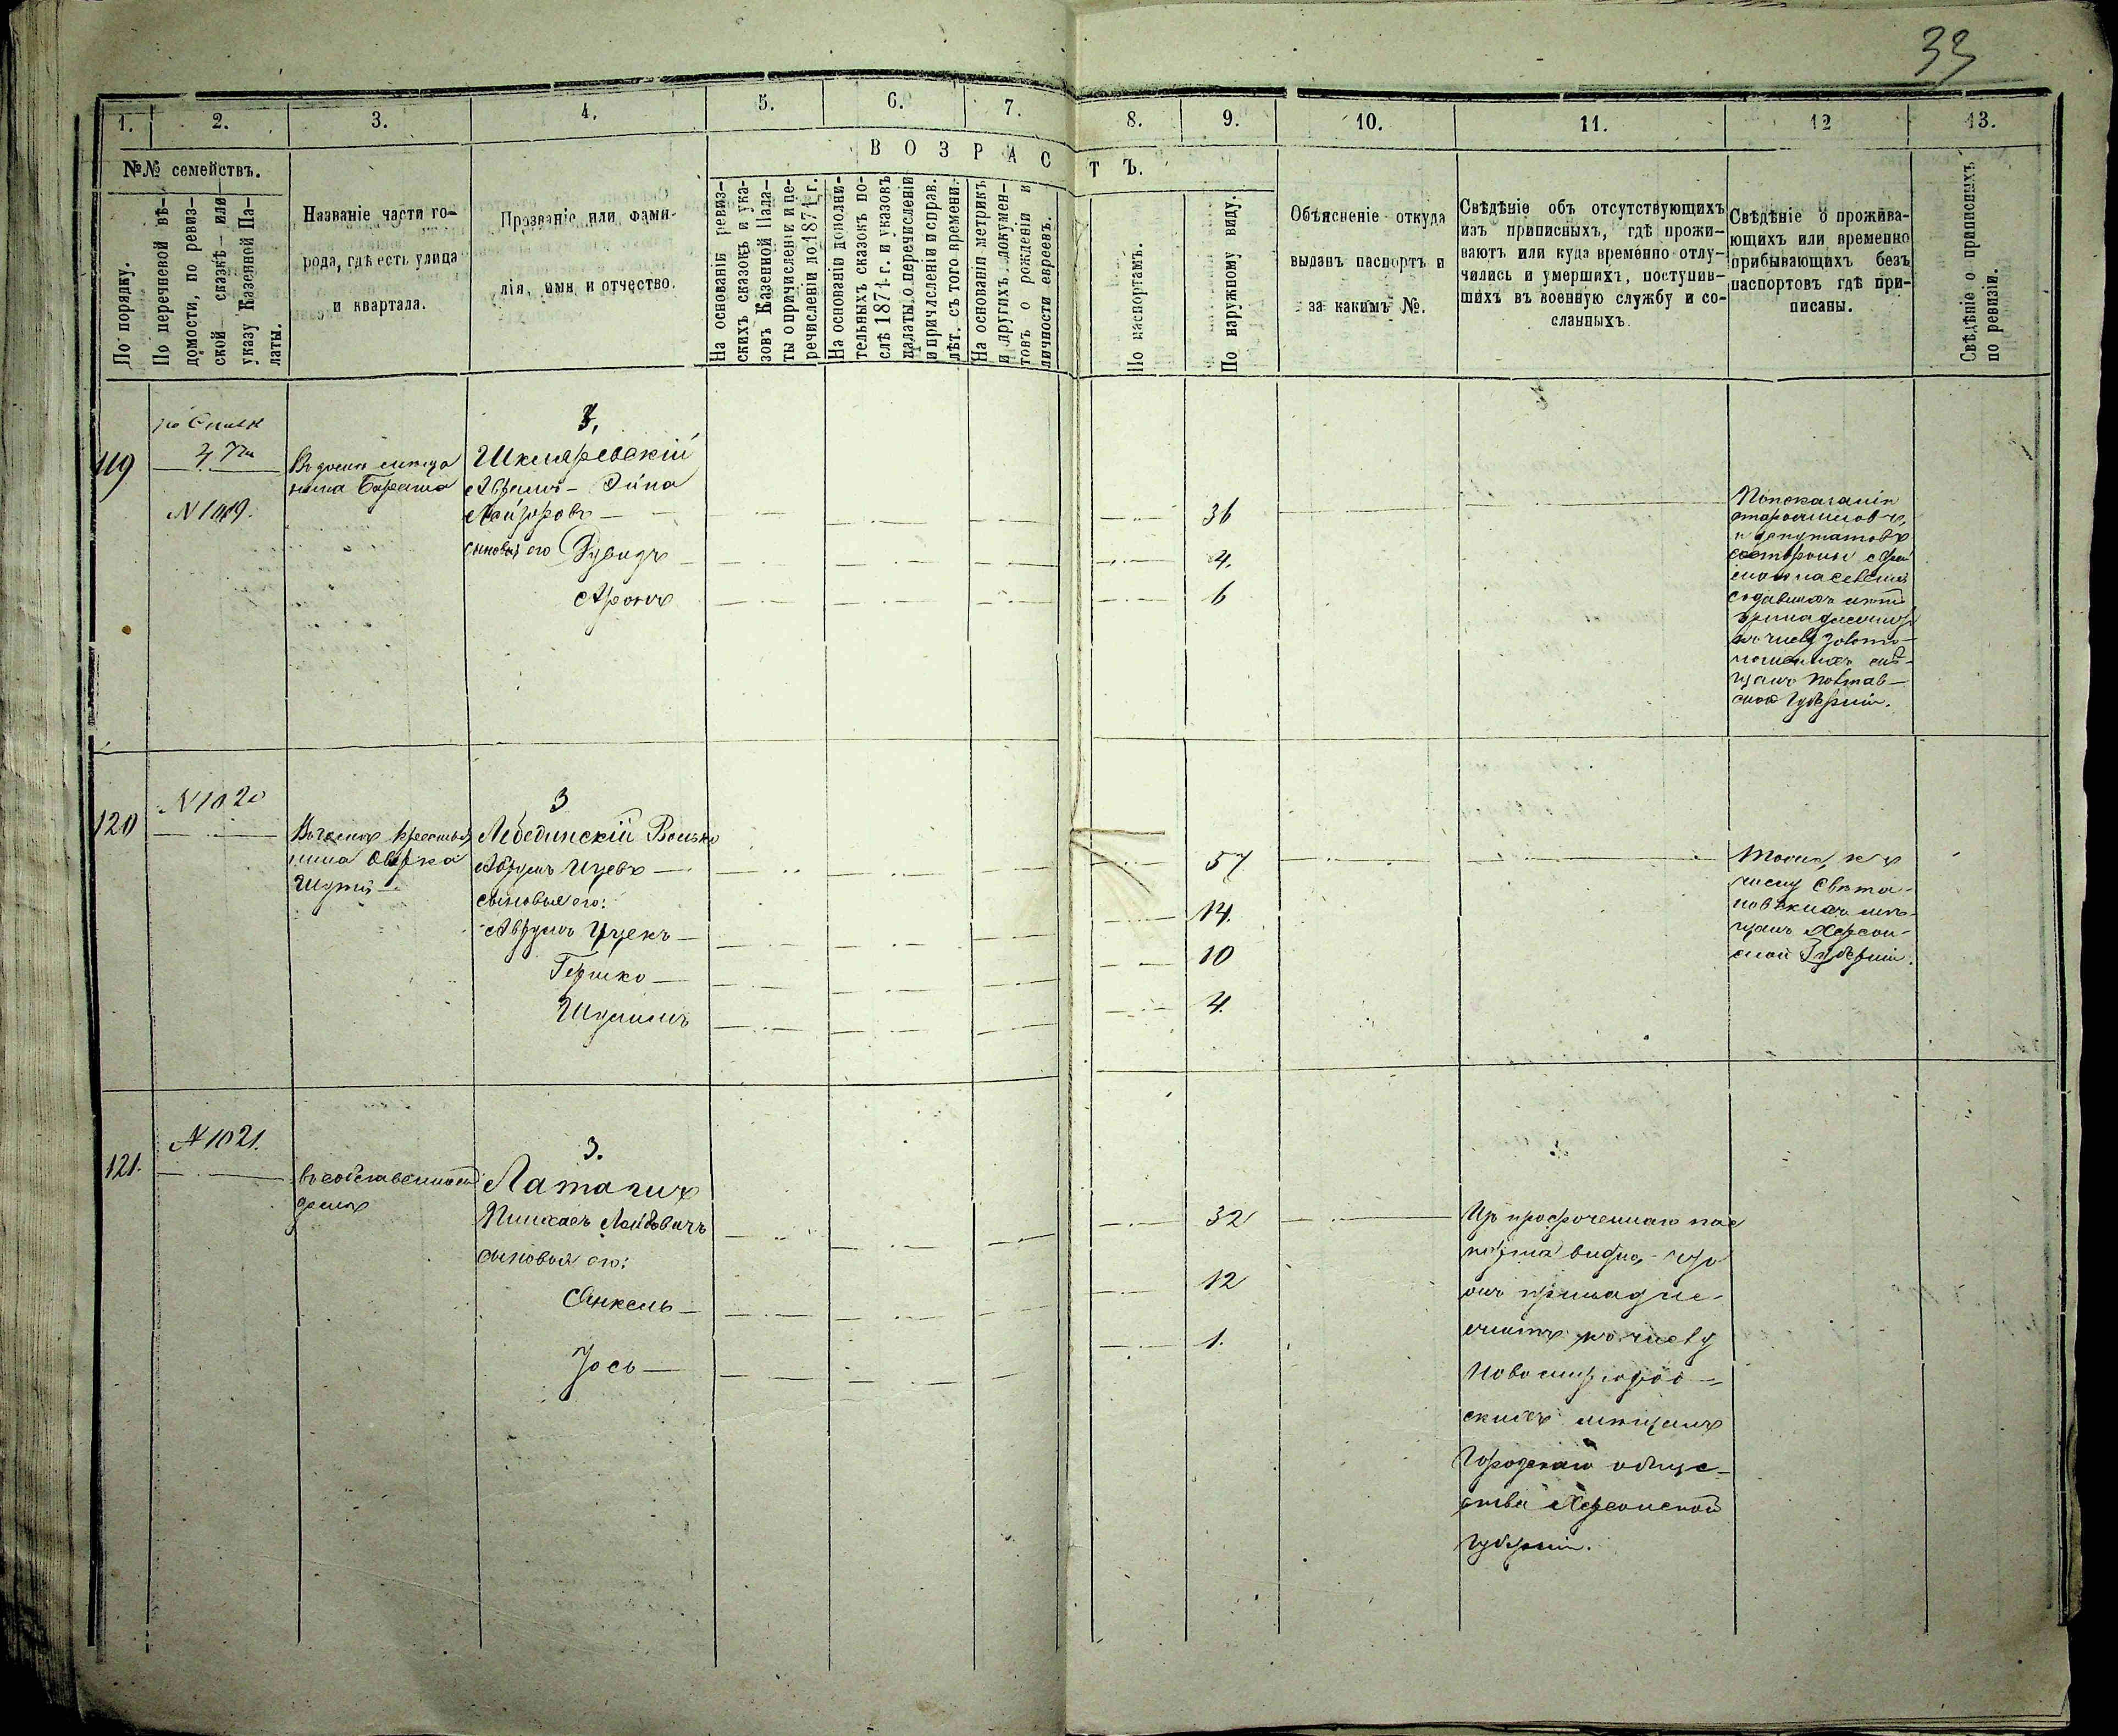 33
1. 2. 3. 4. 5. 6. 7. 8. 9. 10. 11. 12 13.
№№ семействъ.
По порядку.
По перечневой вѣ-
домости, по ревиз-
ской сказкѣ или
указу Казенной Па-
латы.
Названіе части го-
рода, гдѣ есть улица
и квартала.
Прозваніе или фами-
лія, имя и отчество.
ВОЗРАСТЪ.
На основаніи ревиз-
скихъ сказокъ и ука-
зовъ Казенной Пала-
ты о причисленіи и пе-
речисленіи до 1874 г.
На основаніи дополни-
тельныхъ сказокъ по-
слѣ 1874 г. и указовъ
палаты о перечисленіи
и причисленіи и справ.
лѣт. съ того времени.
На основаніи метрикъ
и другихъ докумен-
товъ о рожденіи и
личности евреевъ.
По паспортамъ.
По наружному виду.
Объясненіе откуда
выданъ паспортъ и
за какимъ №.
Свѣдѣніе объ отсутствующихъ
изъ приписныхъ, гдѣ прожи-
ваютъ или куда временно отлу-
чились и умершихъ, поступив-
шихъ въ военную службу и со-
сланныхъ.
Свѣдѣніе о прожива-
ющихъ или временно
прибывающихъ безъ
паспортовъ гдѣ при-
писаны.
Свѣдѣніе о приписныхъ
по ревизіи.
119
N 1019.
3,
Въ домѣ мѣща
нина
Шкляревскій
Аврамъ-
Лейзоровъ
36
сыновья его Дувидъ
4.
Аронъ
6
По показанію
старожиловъ
и депутатовъ
къ числу Золото-
ношскихъ мѣ-
щанъ Полтав-
ской Губерніи.
120
N 1020
3
Въ домѣ крестья
нина Оверка
Лебединскій Волько
Абрумъ Ицевъ
57
сыновья его:
Аврумъ Ицекъ
14.
Гершко
10
Шулимъ
4.
Тоже, къ
числу
мѣ-
щанъ Херсон-
ской Губерніи.
121.
N 1021.
3.
въ собственномъ
домѣ
Латагинъ
Пинхасъ Лейбовичъ
32
сыновья его:
Анкель
12
Іось
1.
Изъ просроченнаго пас
порта видно, что
онъ принадле-
житъ къ числу
Новомиргород-
скихъ мѣщанъ
Городскаго обще-
ства Херсонской
Губерніи.